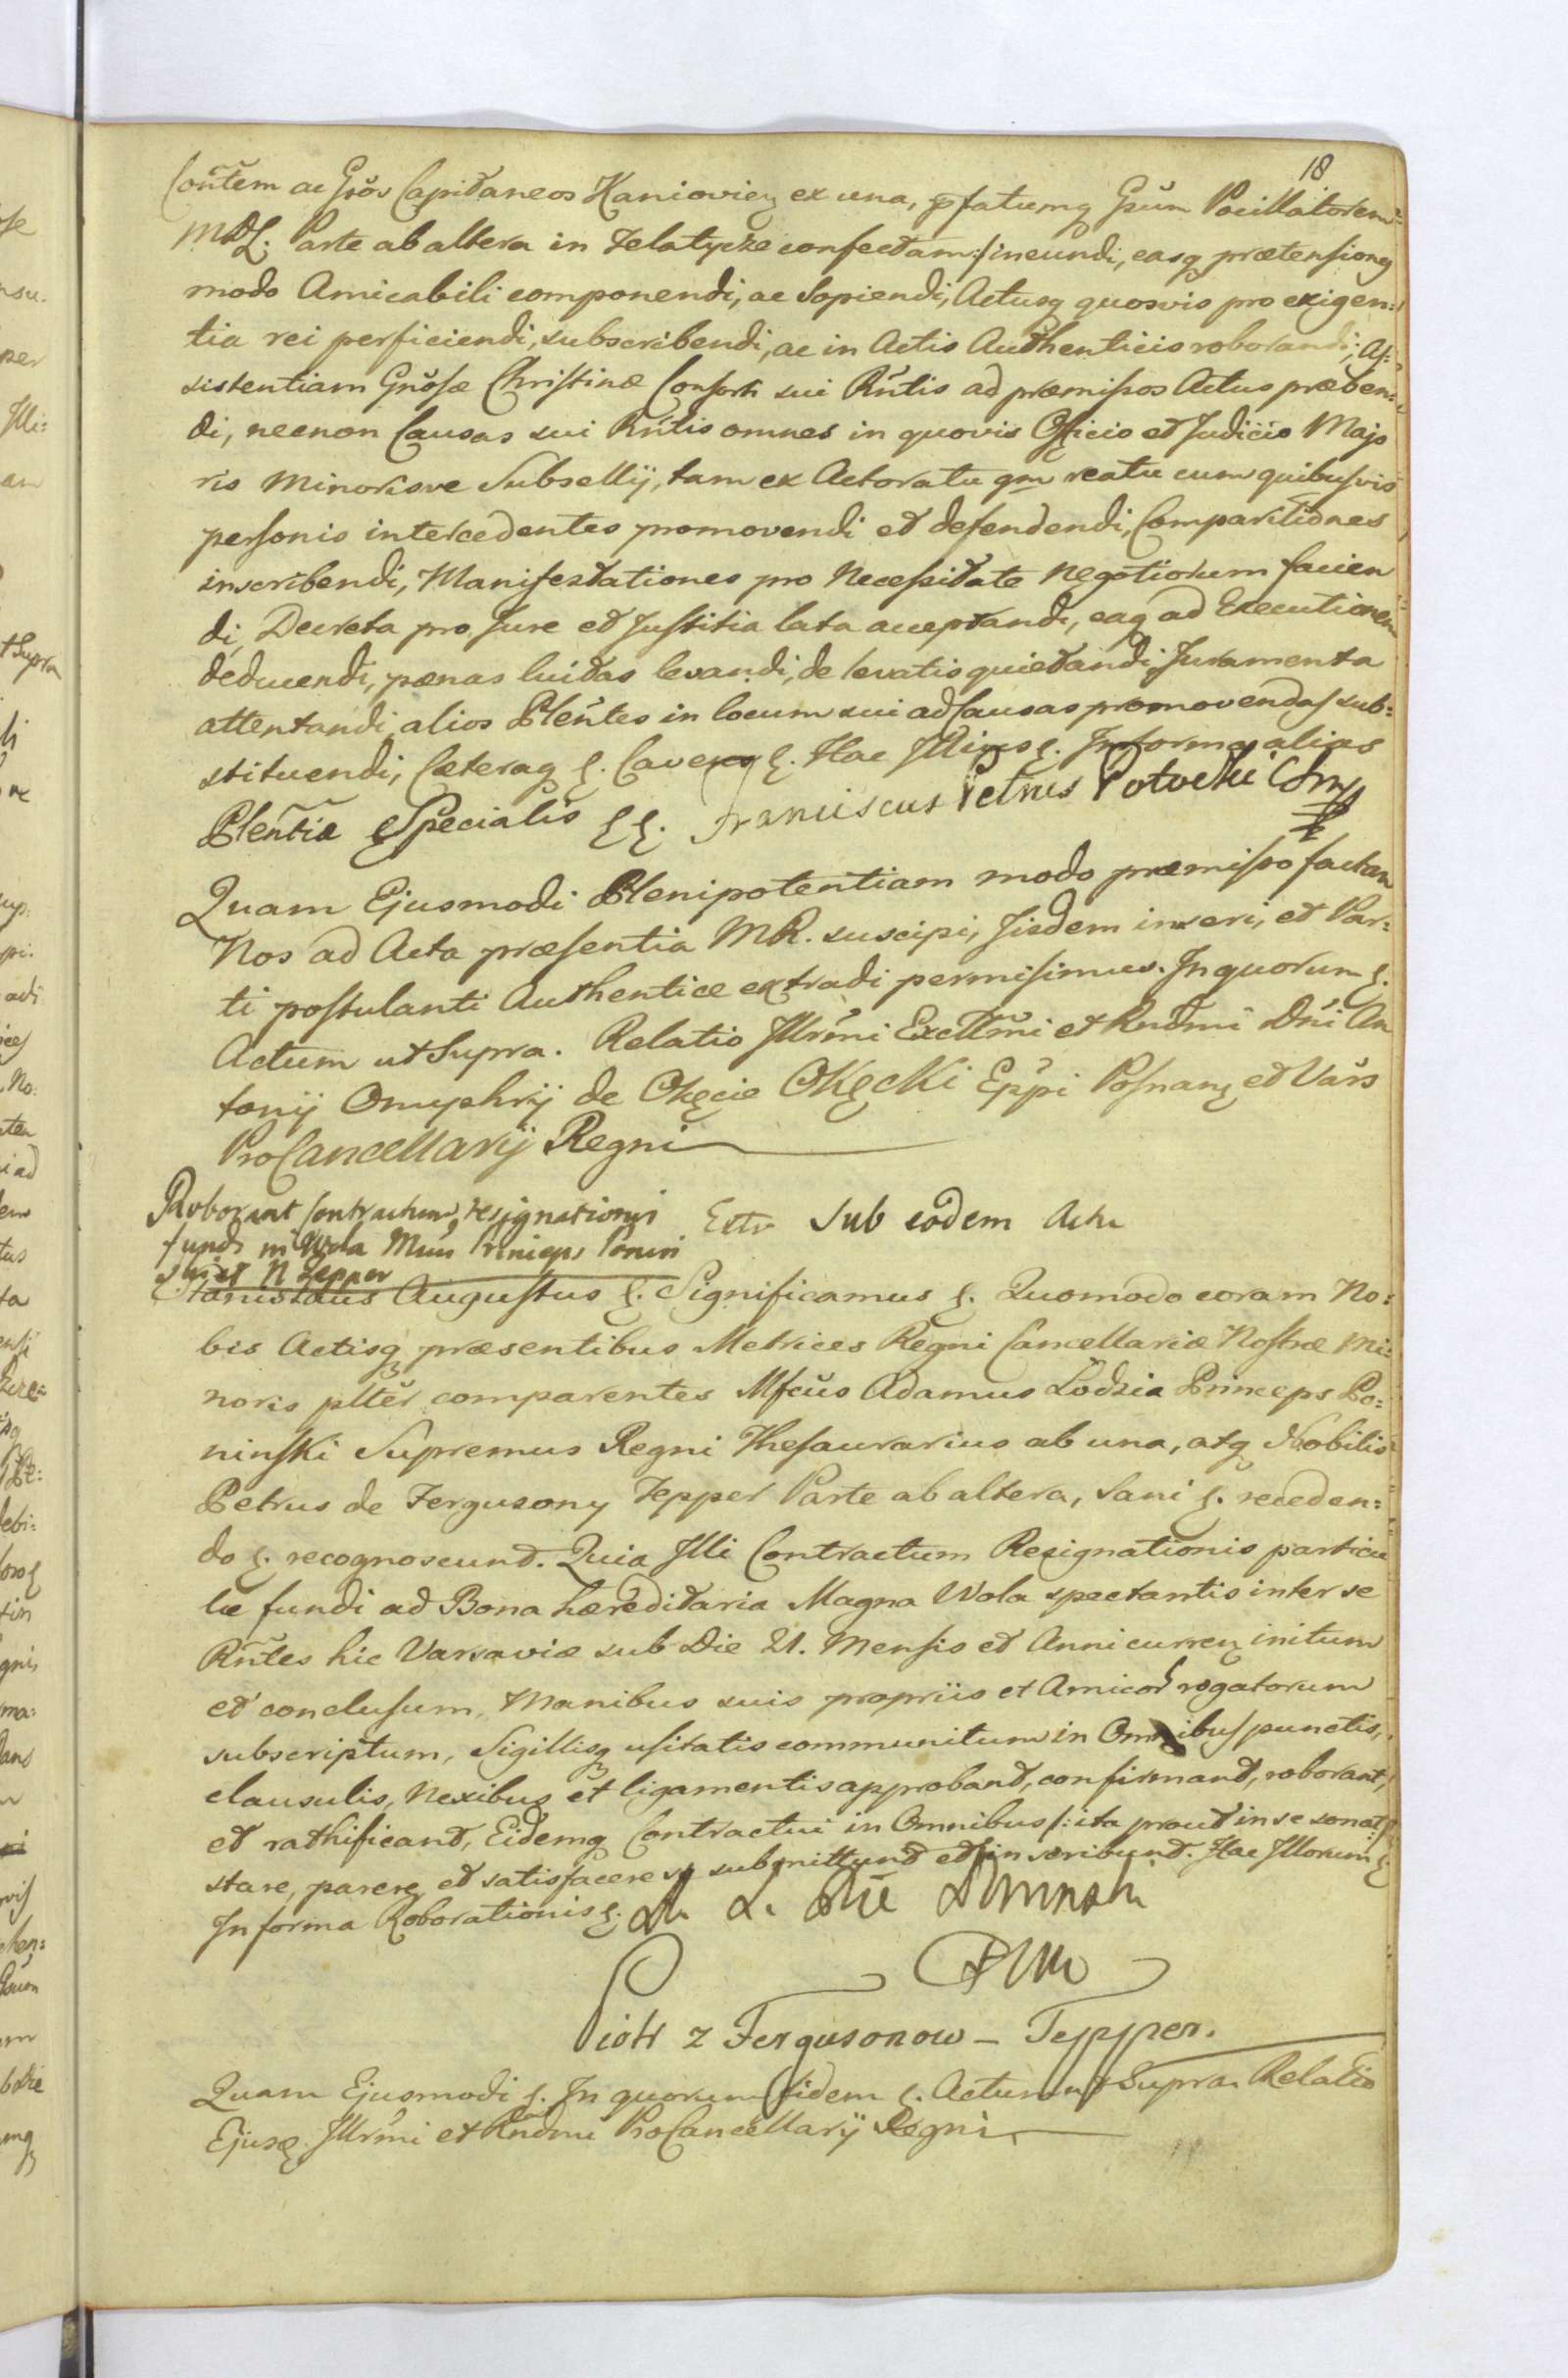 18
Contem ac Gsos Capitaneos Kanioviens ex una, pfatumq Gsum Pocillatorem
MDL. Parte ab altera in Telatycze confectam:/ ineundi, easq prætensiones
modo Amicabili componendi, ac sopiendi, Actusq quosvis pro exigen:
tia rei perficiendi, subscribendi, ac in Actis Authenticis roborandi; As:
sistentiam Gnosæ Christinæ Consorti sui Rntis ad præmissos Actus præben:
di, necnon Causas sui Rntis omnes in quovis Officio et Judicio Majo
ris Minorisve Subsellij, tam ex Actoratu qm reatu cum quibusvis
personis intercedentes promovendi et defendendi, Comparitiones
inscribendi, Manifestationes pro Necessitate Negotiorum facien
di, Decreta pro Jure et Justitia lata acceptandi, eaq ad Executionem
deducendi, pænas luitas levandi, de levatis quietandi Juramenta
attentandi alios Plentes in locum sui ad Causas promovendas sub:
stituendi, Cæteraq &. Cavens &. Hac Illius &. In forma alias
Plentiæ Specialis &&. Franciscus Petrus Potocki
Quam Ejusmodi Plenipotentiam modo præmisso factam
Nos ad Acta præsentia MR. suscipi, Jisdem inseri, et Par:
ti postulanti Authentice extradi permisimus. In quorum &.
Actum ut Supra. Relatio Illrmi Excllmi et Rndmi Dni An
tonij Onuphrij de Okęcie Okęcki Eppi Posnans et Vars
ProCancellarij Regni
Roborant Contractum resignationis
fundi in Wola Princeps Poninski
et N Tepper
Extr Sub eodem Actu
Stanislaus Augustus &. Significamus &. Quomodo coram No:
bis Actisq præsentibus Metrices Regni Cancellariæ Nostræ Mi:
noris plter comparentes Mfcus Adamus Łodzia Princeps Po:
ninski Supremus Regni Thesaurarius ab una, atq Nobilis
Petrus de Fergusony Tepper Parte ab altera, sani &. receden:
do &. recognoscunt. Quia Illi Contractum Resignationis particu
læ fundi ad Bona hæreditaria Magna Wola spectantis inter se
Rntes hic Varsaviæ sub Die 21. Mensis et Anni curren initum
et conclusum, Manibus suis propriis et Amicor rogatorum
subscriptum, Sigillisq usitatis communitum in Omnibus punctis,
clausulis, Nexibus et ligamentis approbant, confirmant, roborant,
et rathificant, Eidemq Contractui in Omnibus /: ita prout in se sonat :/
stare, parere et satisfacere se submittunt et inscribunt. Hac Illorum &
In forma Roborationis &.
Piotr z Fergusonow – Tepper.
Quam Ejusmodi &. In quorum fidem &. Actum ut Supra. Relatio
Ejusd Illrmi et Rndmi ProCancellarij Regni